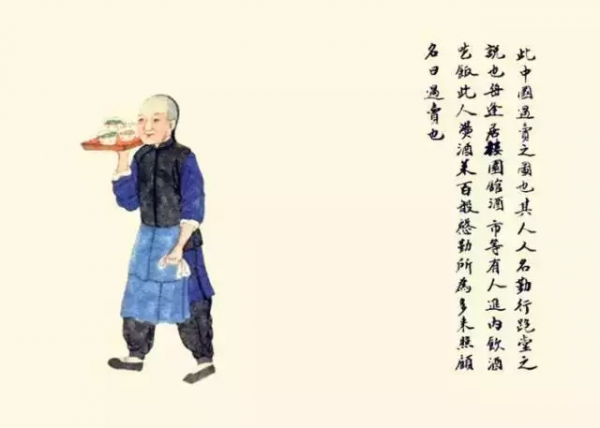 此中國過賣之圖也其人人名勤行跑堂之
說也每逢居樓園館酒市等有人進內飲酒
吃飯此人攢酒菜百般慇勤所為多來照顧
名曰過賣也